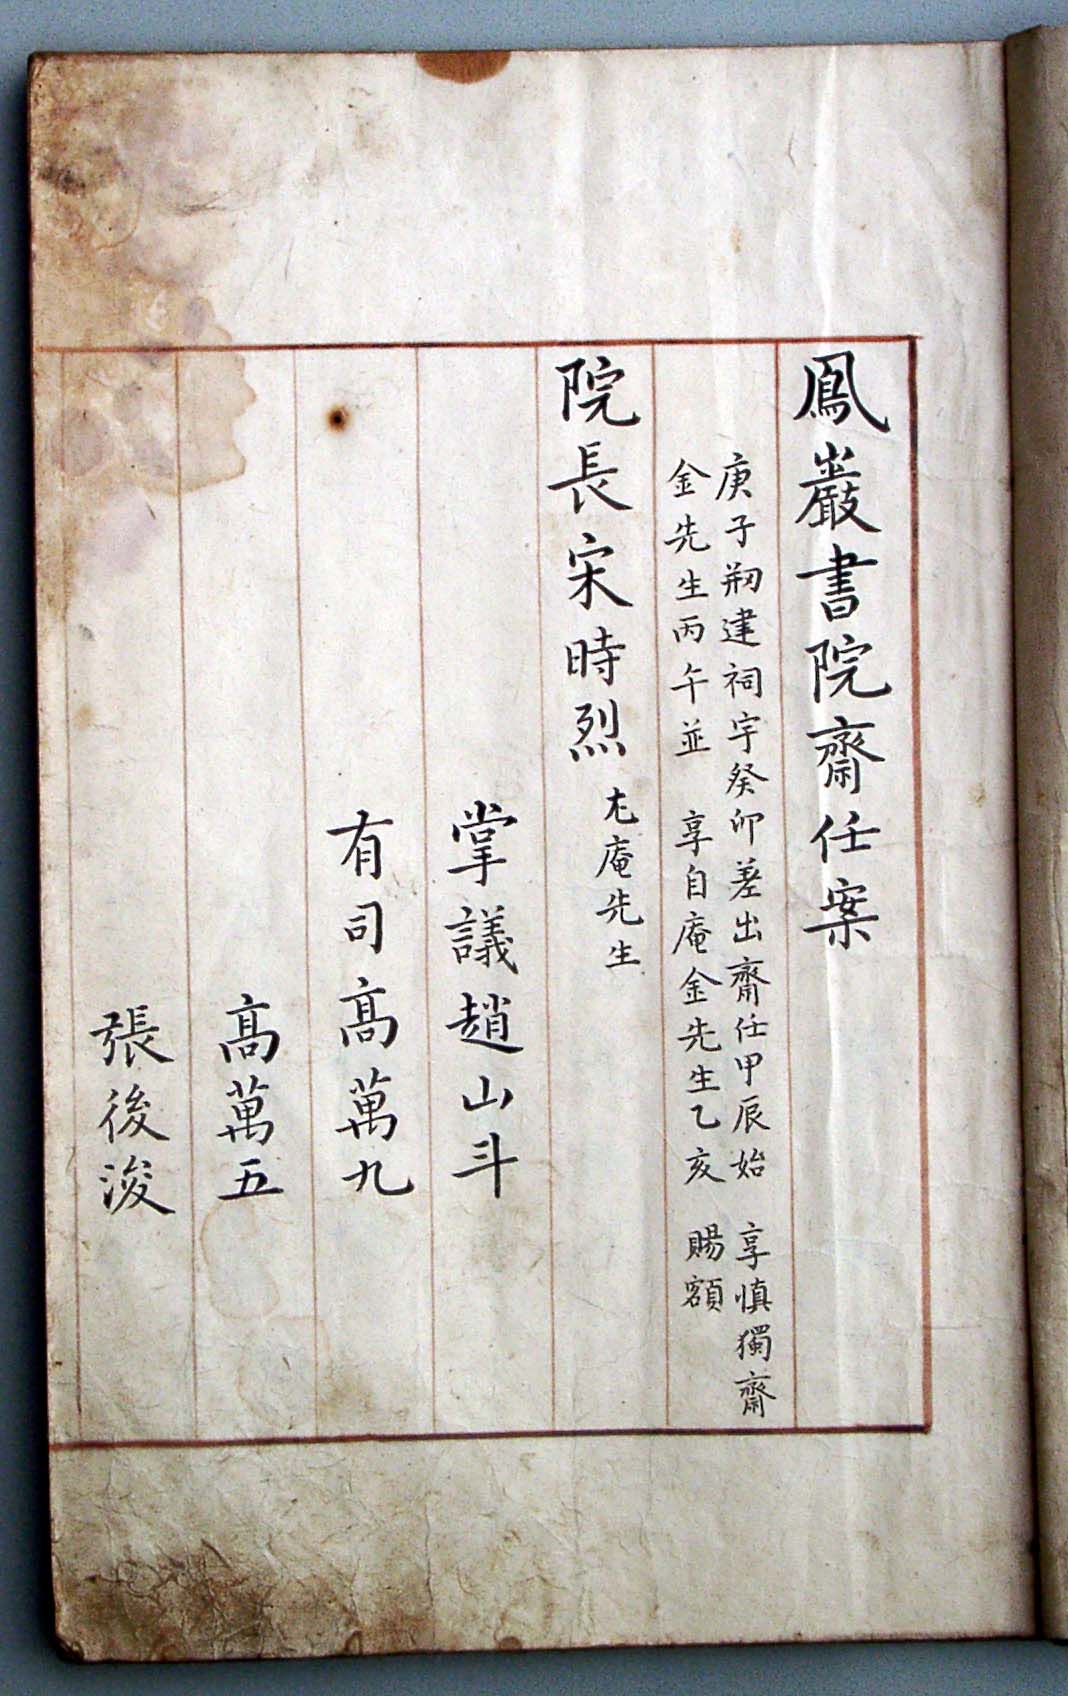 鳳巖書院齋任案
庚子刱建祠宇癸卯差出齋任甲辰始 享愼獨齋
金先生丙午並 享自庵金先生乙亥 賜額
院長宋時烈 尤庵先生
掌議趙山斗
有司高萬九
高萬五
張後浚